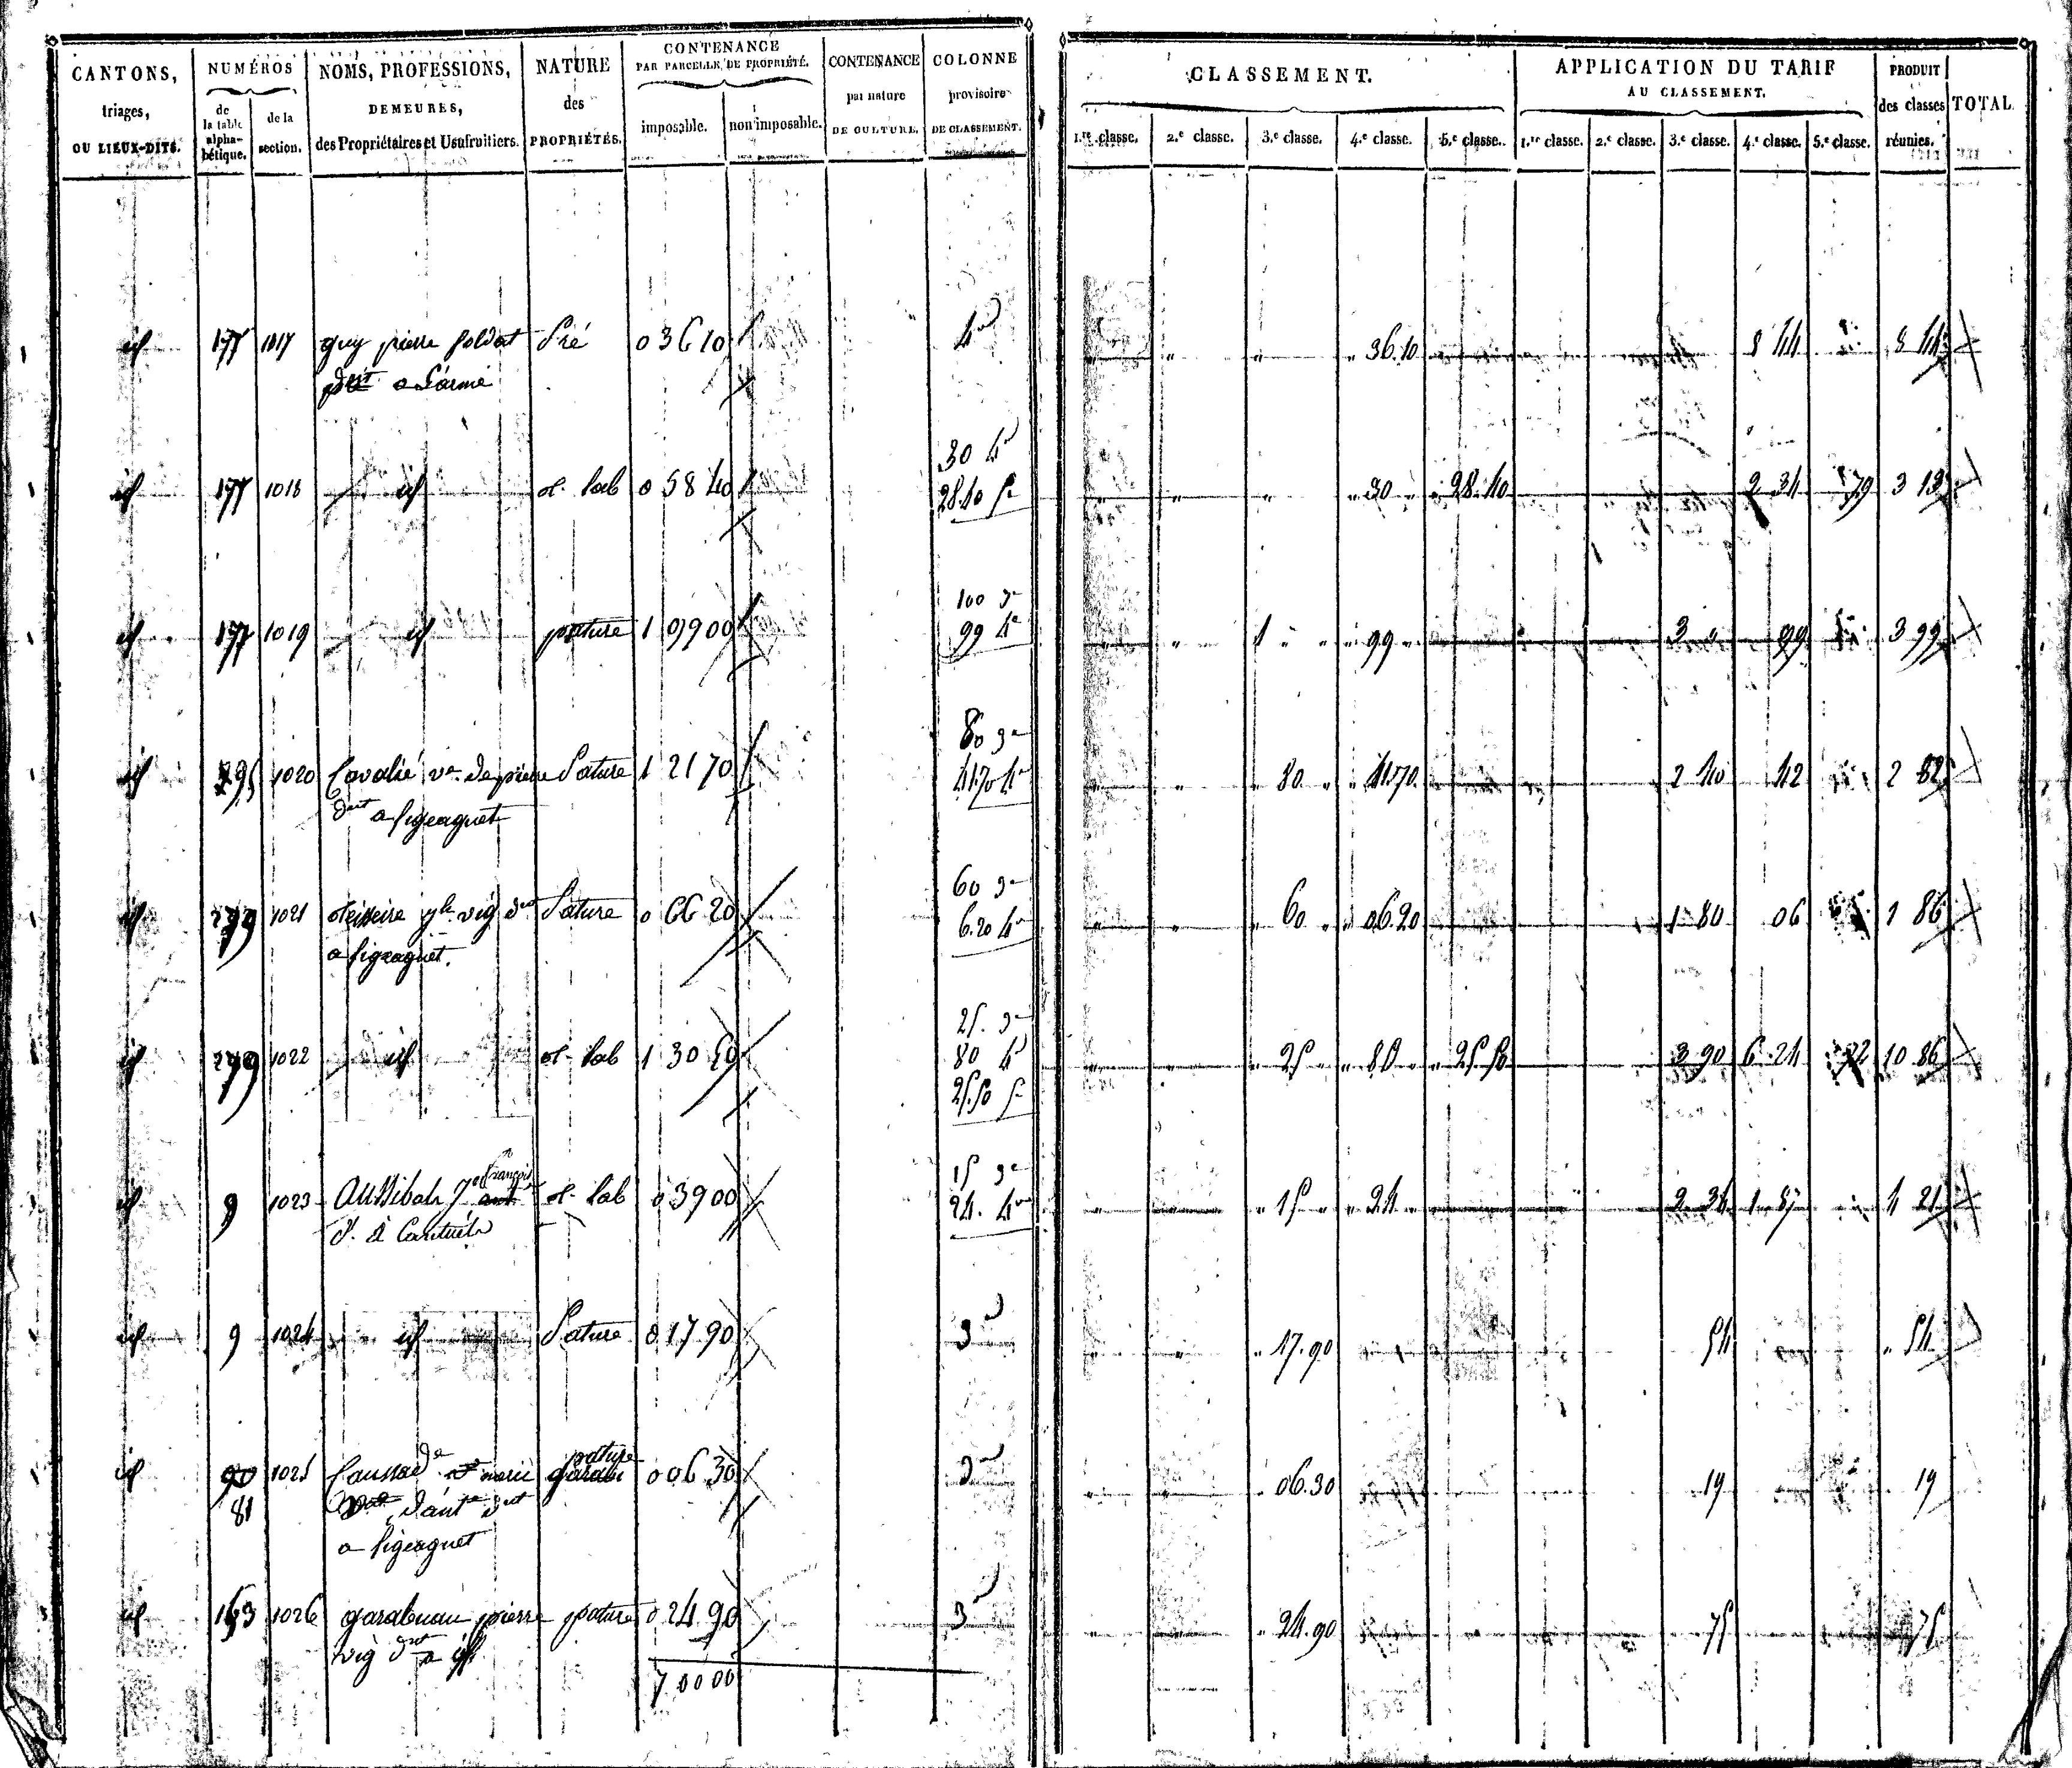 CANTONS, triages, OU LIEUX-DITS.
NUMÉROS de la table alphabétique. de la section.
NOMS, PROFESSIONS, DEMEURES, des Propriétaires et Usufruitiers.
NATURE des PROPRIÉTÉS.
CONTENANCE PAR PARCELLE, DE PROPRIÉTÉ. imposable. non imposable.
CONTENANCE par nature DE CULTURE.
COLONNE provisoire DE CLASSEMENT.
CLASSEMENT.
1.re classe. 2.e classe. 3.e classe. 4.e classe. 5.e classe.
APPLICATION DU TARIF AU CLASSEMENT.
1.re classe. 2.e classe. 3.e classe. 4.e classe. 5.e classe.
PRODUIT des classes réunies.
TOTAL.
id 177 1017 guy pierre soldat Pré 0 36 10 4e " " " 36.10 8 44 8 44
a L'armé
id 177 1018 id t. lab 0 58 40 30 4e 28.40 5e " " " " 30 " " 28.40 2 34 79 3 13
id 177 1019 id pature 1 99 00 100 3e 99 4e " " 1 " " " 99 " 3 " 99 3 99
id 295 1020 Cavalié ve. de pierre Pature 1 21 70 80 3e 41.70 4e " " " 80 " " 41.70 2 40 42 2 82
dent a pigeaguet
id 279 1021 teisseire vig dent Pature 0 66 20 60 3e 6.20 4e " " " 60 " " 06.20 1 80 06 1 86
a pigeaguet.
id 279 1022 id t. lab 1 30 50 25. 3e 80 4e 25.50 5e " " " 25 " " 80 " " 25.50 3 90 6 24 72 10 86
id 9 1023 Aussibah françois t. lab 0 39 00 15 3e 24. 4e " " " 15 " " 24 " 2 34 1 87 4 21
d. à
id 9 1024 id Pature 0 17 90 3e " " " 17.90 54 " 54
id 90 1025 Caussade marie pature 0 06 30 3e " " " 06.30 19 19
81 d'ant dent
a Pigeaguet
id 163 1026 garabuau pierre pature 0 24 90 3e " " " 24.90 75 75
vig dent a
7 00 00